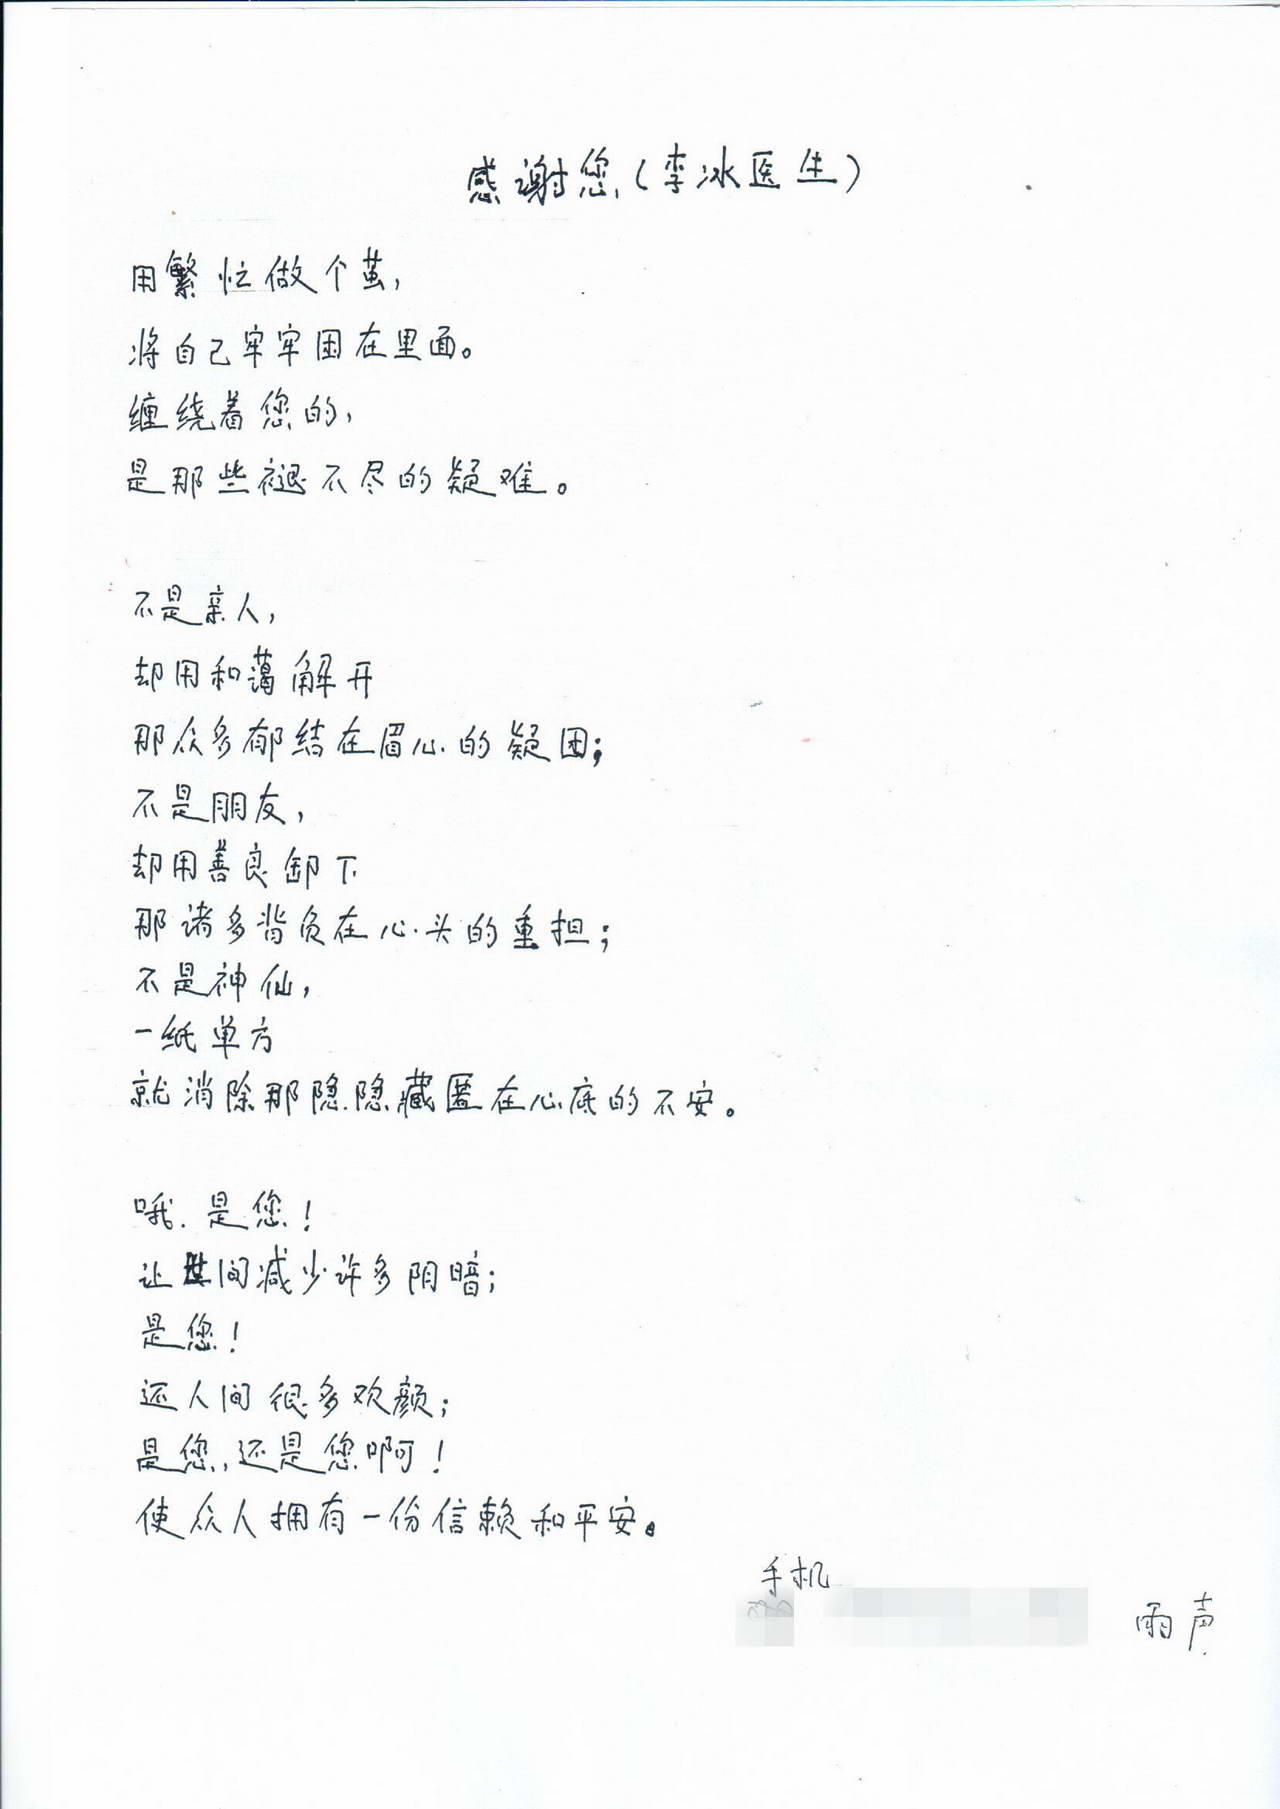 感谢您(李冰医生)
用繁忙做个茧,
将自己牢牢困在里面。
缠绕着您的,
是那些褪不尽的疑难。
不是亲人,
却用和蔼解开
那众多郁结在眉心的疑团;
不是朋友,
却用善良卸下
那诸多背负在心头的重担;
不是神仙,
一纸单方
就消除那隐隐藏匿在心底的不安。
哦.是您!
让世间减少许多阴暗;
是您!
还人间很多欢颜;
是您,还是您啊!
使众人拥有一份信赖和平安。
手机
雨声